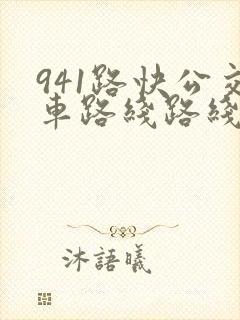 941路快公交
車路綫路綫
沐語曦